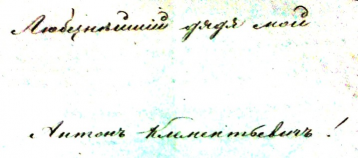 Любезнейший дядя мой
Антонъ Климентьевичъ!